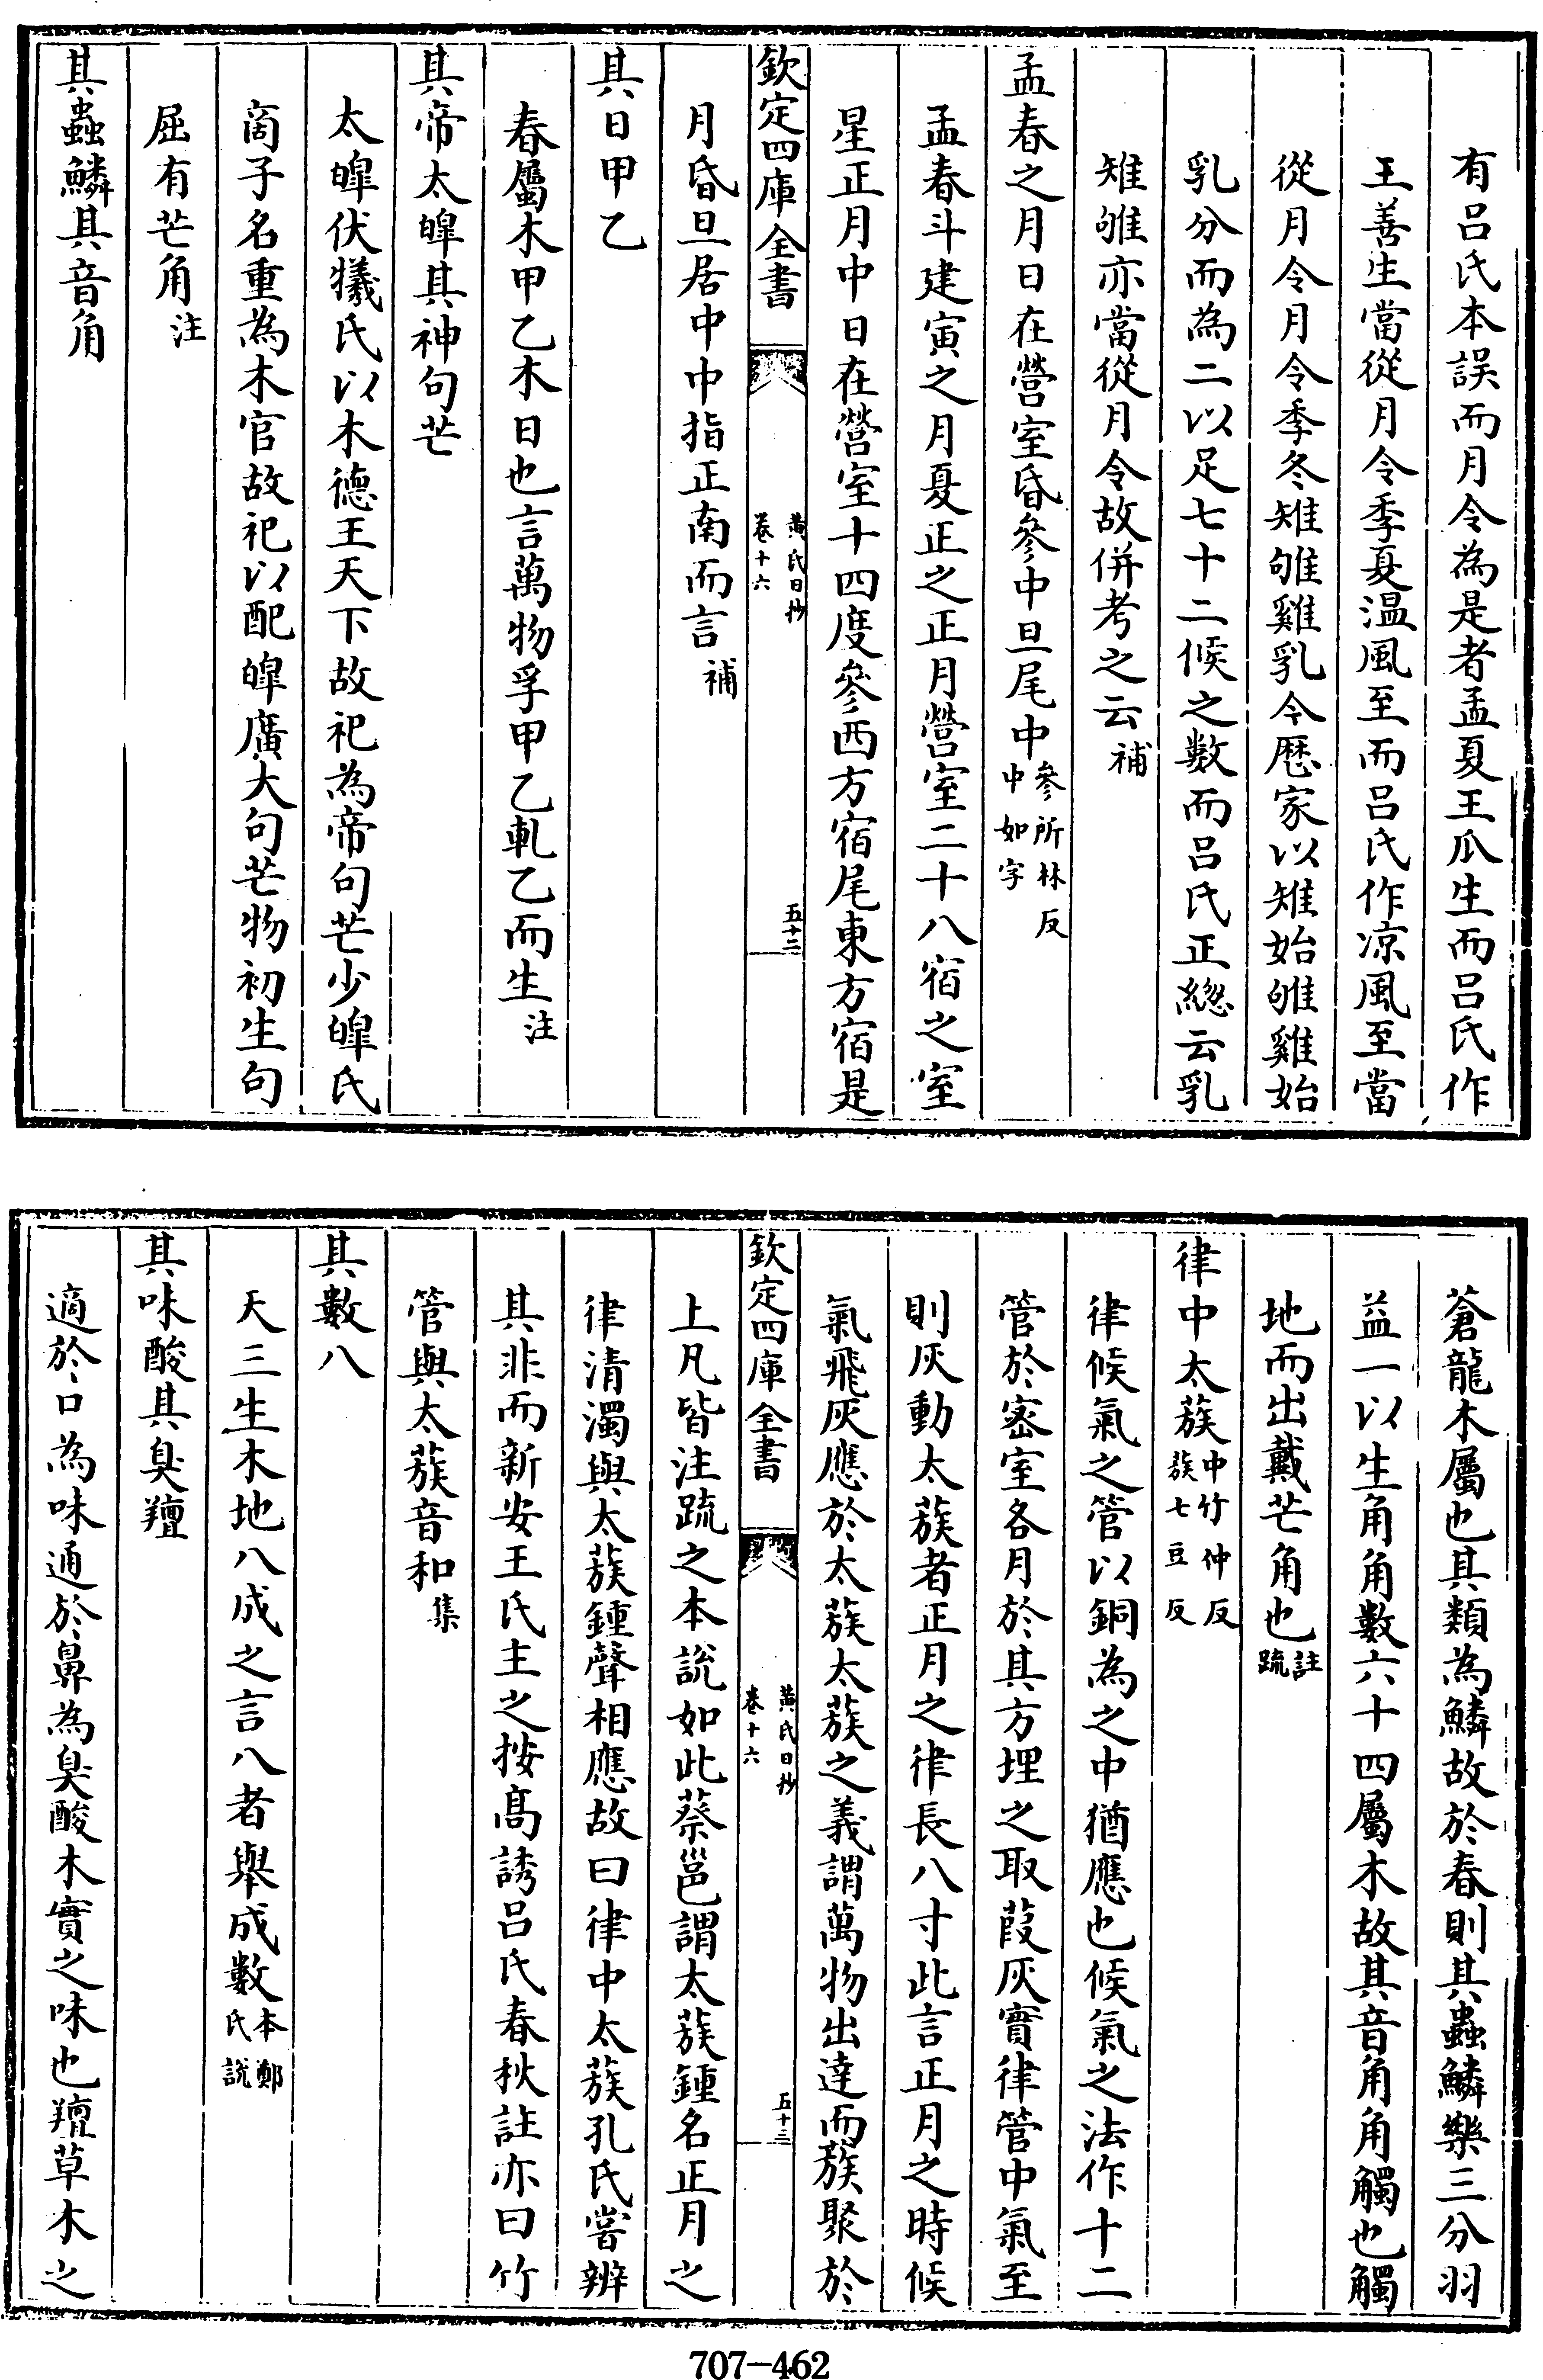 有吕氏本誤而月令為是者孟夏王瓜生而吕氏作
王善生當從月令季夏温風至而吕氏作凉風至當
從月令月令季冬雉雊雞乳今厯家以雉始雊雞始
乳分而為二以足七十二候之數而吕氏正總云乳
雉雊亦當從月令故併考之云補
孟春之月日在營室昏參中旦尾中參所林反中如字
孟春斗建寅之月夏正之正月營室二十八宿之室
星正月中日在營室十四度參西方宿尾東方宿是
欽定四庫全書
黄氏日抄
卷十六
五十二
月昏旦居中中指正南而言補
其日甲乙
春屬木甲乙木日也言萬物孚甲乙軋乙而生注
其帝太皥其神句芒
太皥伏犧氏以木德王天下故祀為帝句芒少皥氏
啇子名重為木官故祀以配皥廣大句芒物初生句
屈有芒角注
其蟲鱗其音角
蒼龍木屬也其類為鱗故於春則其蟲鱗樂三分羽
益一以生角角數六十四屬木故其音角角觸也觸
地而出戴芒角也註疏
律中太蔟中竹仲反蔟七豆反
律候氣之管以銅為之中猶應也候氣之法作十二
管於宻室各月於其方埋之取葭灰實律管中氣至
則灰動太蔟者正月之律長八寸此言正月之時候
氣飛灰應於太蔟太蔟之義謂萬物出達而蔟聚於
欽定四庫全書
黄氏日抄
卷十六
五十三
上凡皆注疏之本說如此蔡邕謂太蔟鍾名正月之
律清濁與太蔟鍾聲相應故曰律中太蔟孔氏嘗辨
其非而新安王氏主之按髙誘吕氏春秋註亦曰竹
管與太蔟音和集
其數八
天三生木地八成之言八者舉成數本鄭氏說
其味酸其臭羶
適於口為味通於鼻為臭酸木實之味也羶草木之
707-462